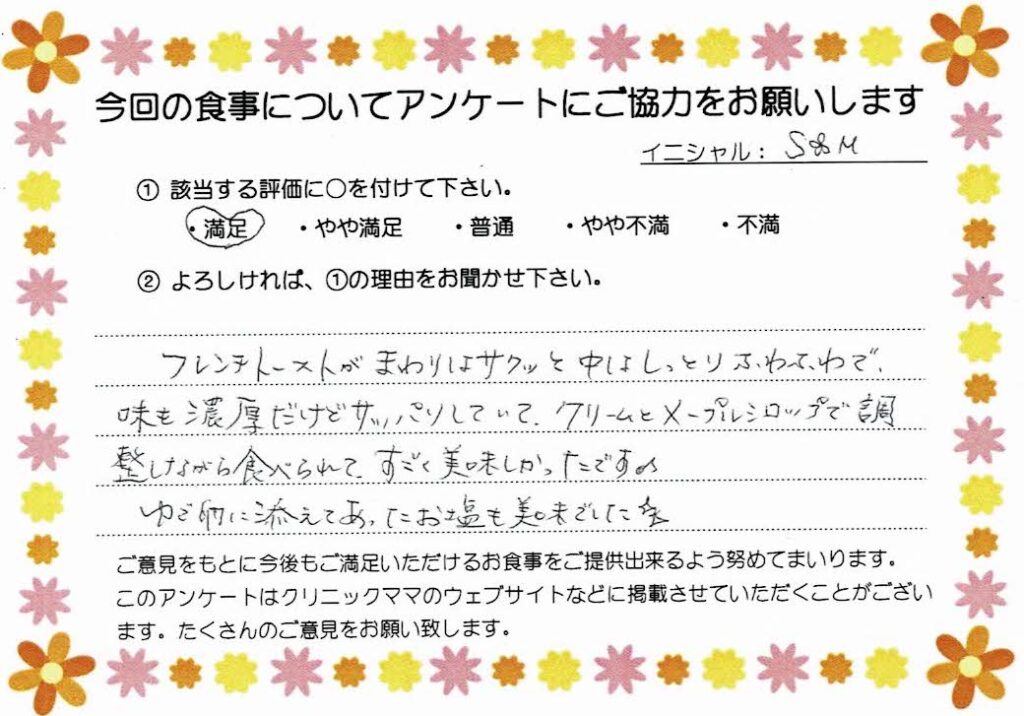 今回の食事についてアンケートにご協力をお願いします
イニシャル： S&M
① 該当する評価に○を付けて下さい。
・満足 ・やや満足 ・普通 ・やや不満 ・不満
② よろしければ、①の理由をお聞かせ下さい。
フレンチトーストがまわりはサクッと中はしっとりふわふわで、
味も濃厚だけどサッパリしていて、クリームとメープルシロップで調
整しながら食べられて、すごく美味しかったです♪
ゆで卵に添えてあったお塩も美味でした☆
ご意見をもとに今後もご満足いただけるお食事をご提供出来るよう努めてまいります。
このアンケートはクリニックママのウェブサイトなどに掲載させていただくことがござい
ます。たくさんのご意見をお願い致します。